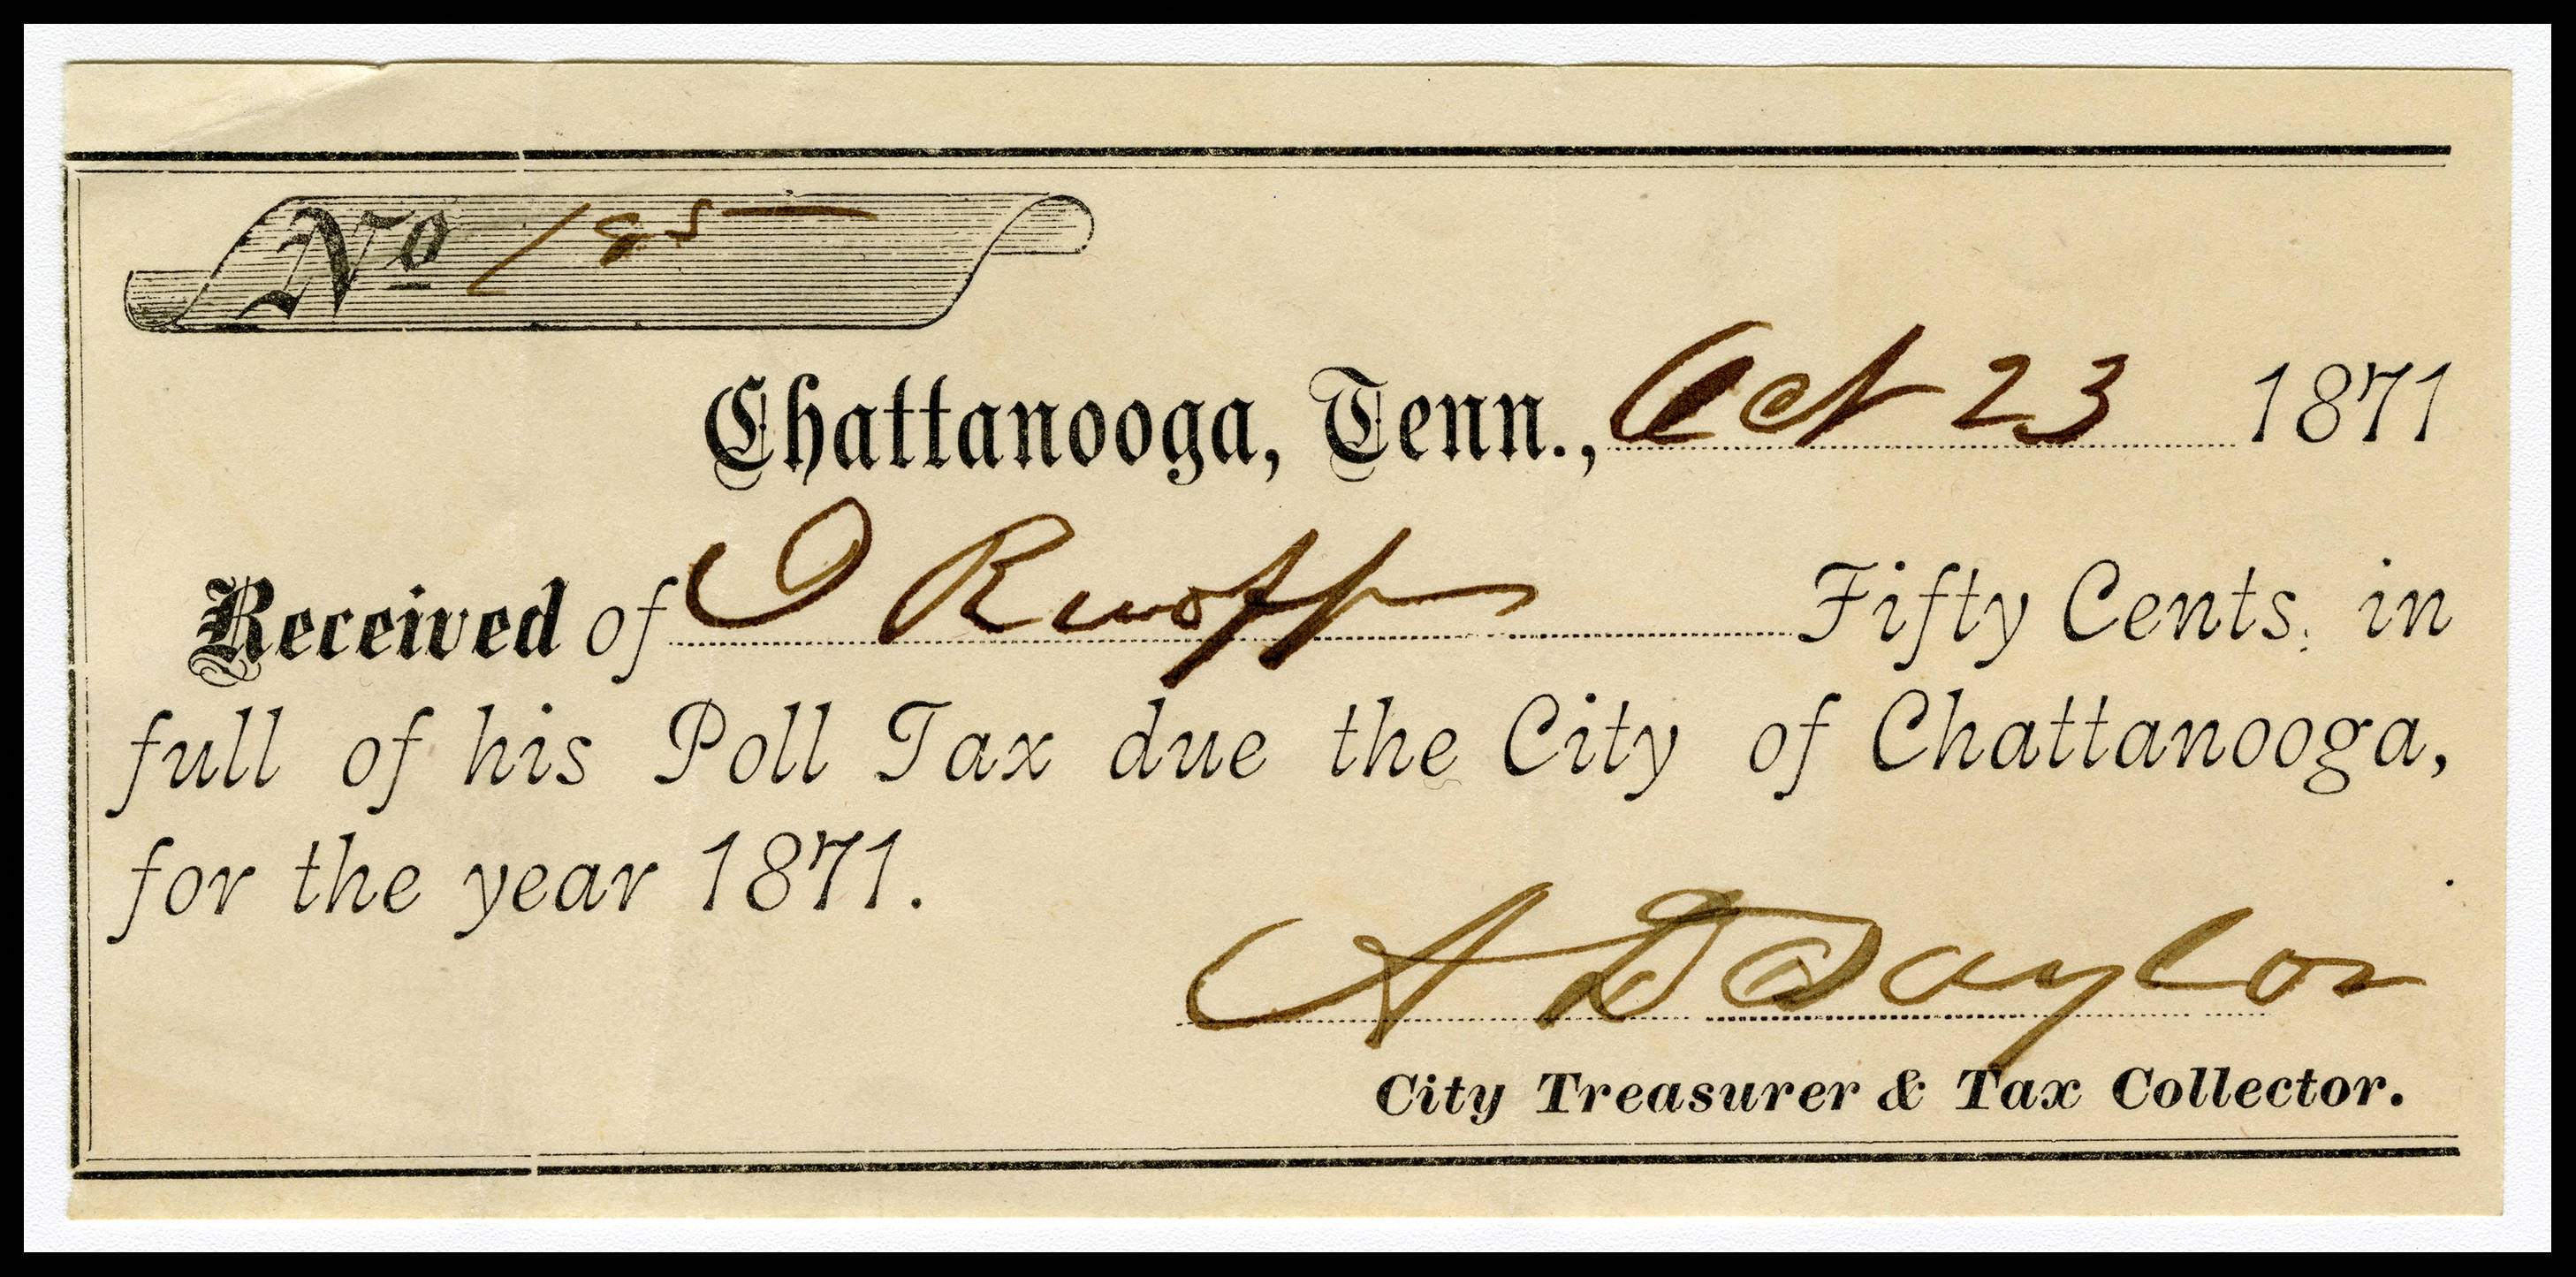 No 185
Chattanooga, Tenn., Oct 23 1871
Received of O Ruoff Fifty Cents, in
full of his Poll Tax due the City of Chattanooga,
for the year 1871.
A D Taylor
City Treasurer & Tax Collector.